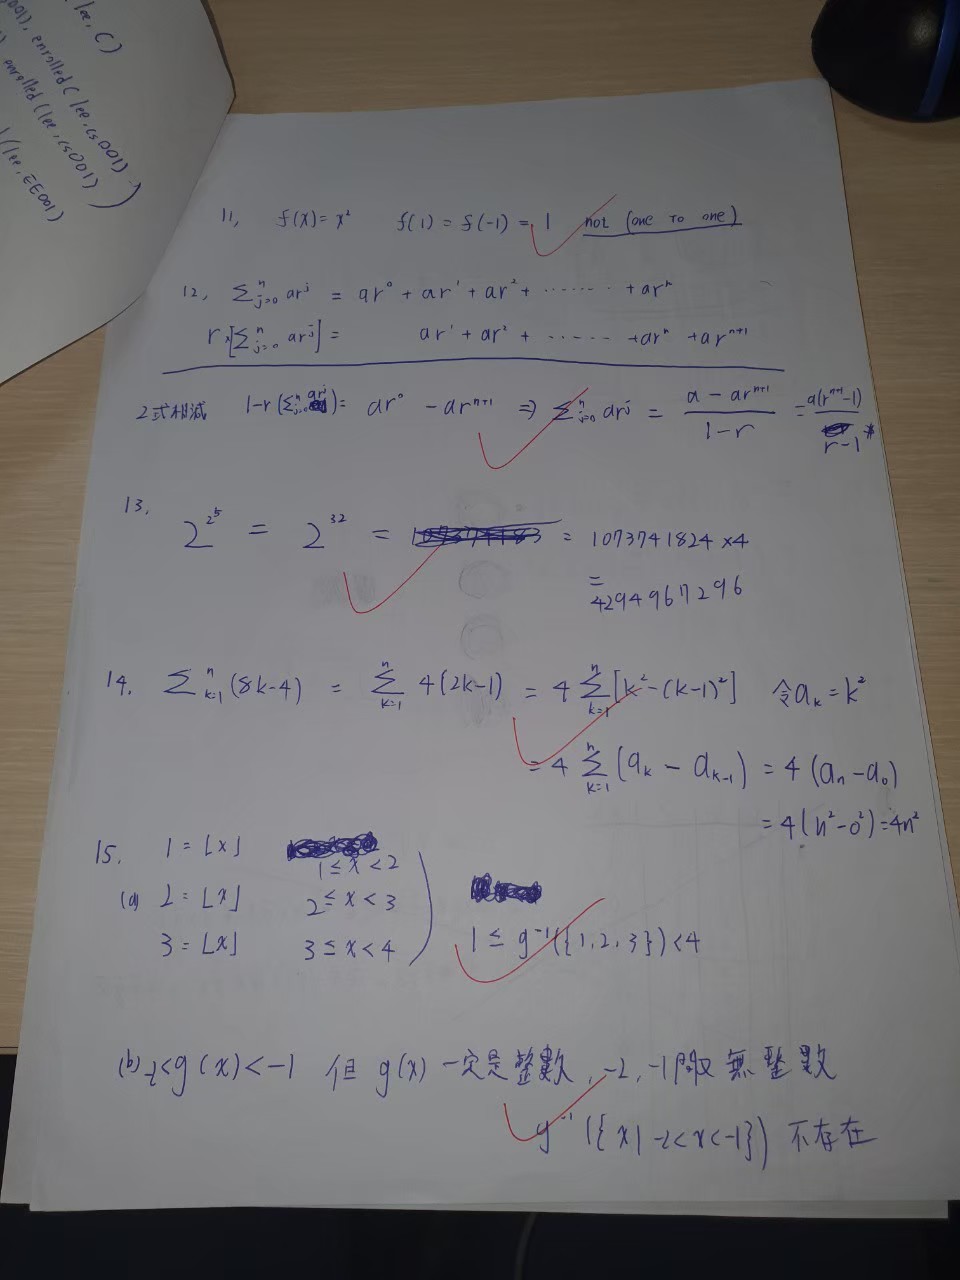 lee, C)
enrolled(lee, cs001)
enrolled(lee, cs001)
(lee, EE001)
11, f(x) = x² f(1) = f(-1) = 1 not (one to one)
12, ∑ⁿⱼ₌₀ arʲ = ar⁰ + ar¹ + ar² + ······ + arⁿ
r × [∑ⁿⱼ₌₀ arʲ] = ar¹ + ar² + ······ + arⁿ + arⁿ⁺¹
2式相減 1-r (∑ⁿⱼ₌₀ arʲ) = ar⁰ - arⁿ⁺¹ ⇒ ∑ⁿⱼ₌₀ arʲ = (a - arⁿ⁺¹)/(1-r) = a(rⁿ⁺¹-1)/(r-1)
13, 2^2^5 = 2³² = = 1073741824 ×4
= 4294967296
14. ∑ⁿₖ₌₁ (8k-4) = ∑ⁿₖ₌₁ 4(2k-1) = 4 ∑ⁿₖ₌₁ [k² - (k-1)²] 令aₖ = k²
= 4 ∑ⁿₖ₌₁ (aₖ - aₖ₋₁) = 4 (aₙ - a₀)
= 4(n² - 0²) = 4n²
15. 1 = ⌊x⌋ 1 ≤ x < 2
(a) 2 = ⌊x⌋ 2 ≤ x < 3
3 = ⌊x⌋ 3 ≤ x < 4 1 ≤ g⁻¹({1, 2, 3}) < 4
(b) -2 < g(x) < -1 但 g(x) 一定是整數, -2, -1間取無整數
g⁻¹({x| -2 < x < -1}) 不存在